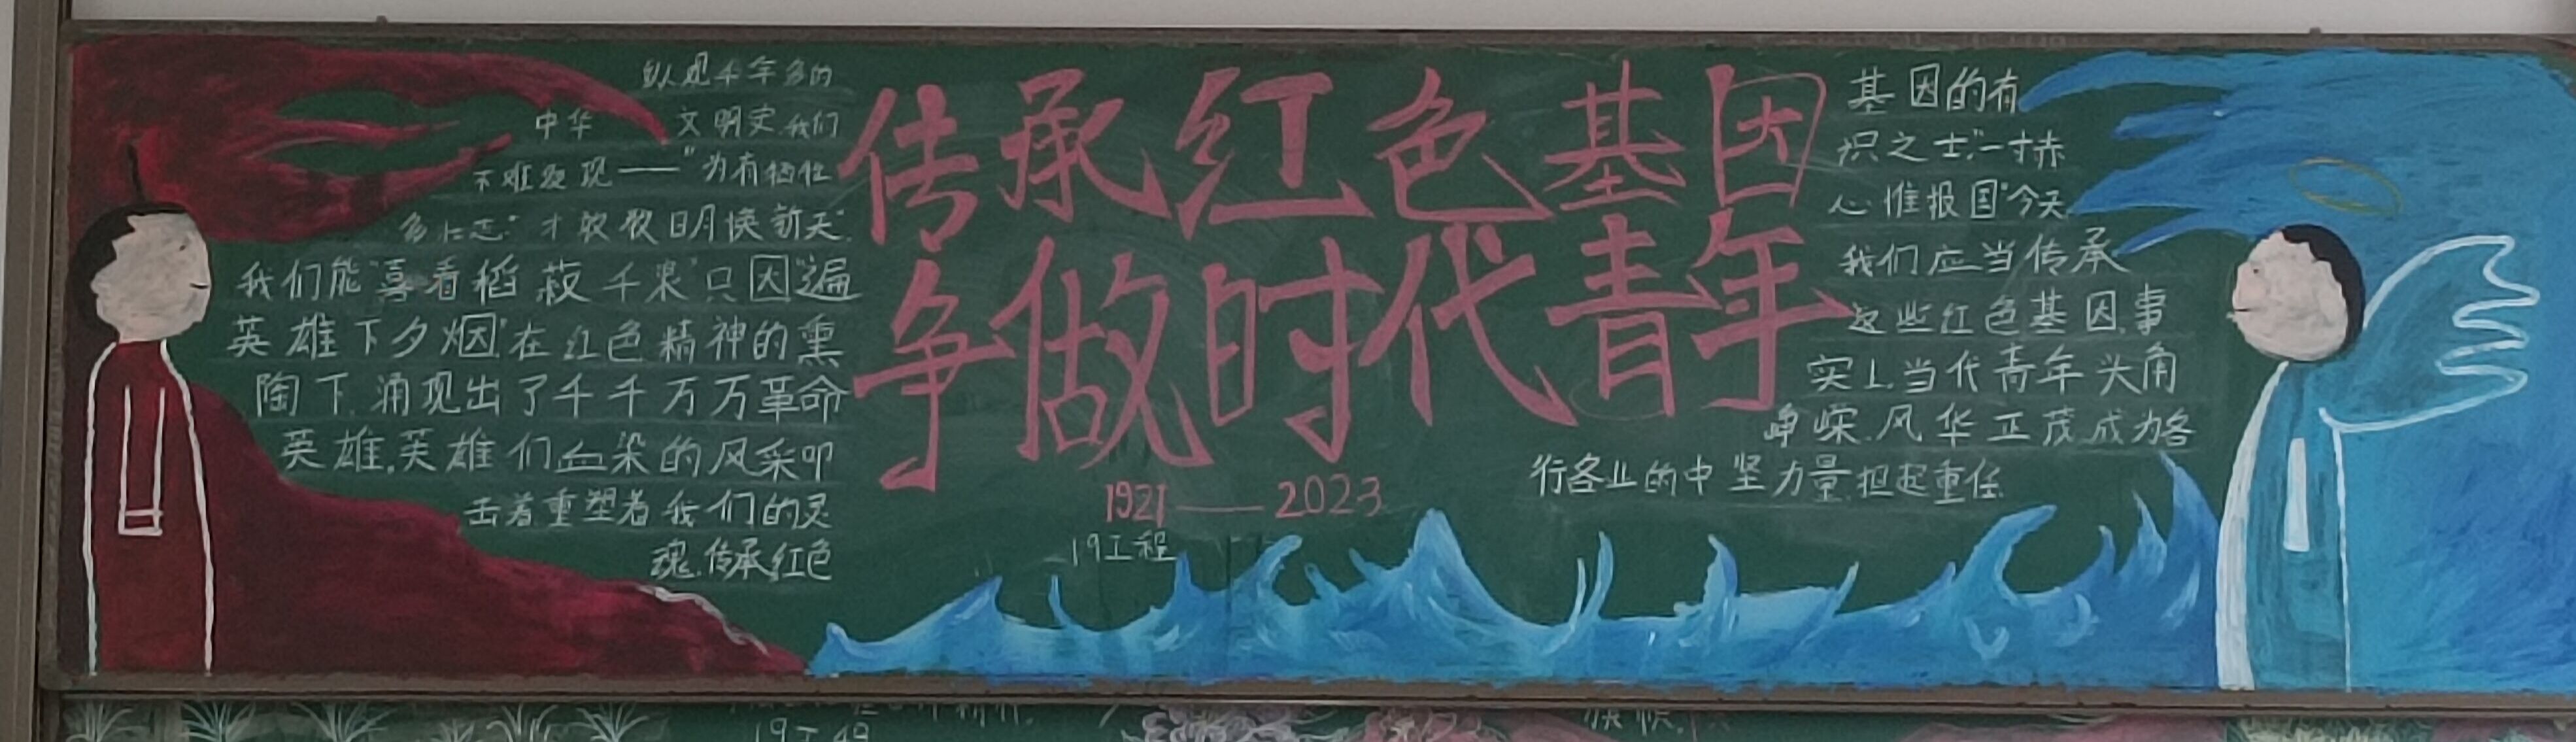 纵观千年多的
中华 文明史,我们
不难发现——"为有牺牲
多壮志"才敢教日月换新天"
我们能"喜看稻菽千浪"只因"遍
英雄下夕烟"在红色精神的熏
陶下,涌现出了千千万万革命
英雄,英雄们血染的风采叩
击着重塑着我们的灵
魂,传承红色
传承红色基因
争做时代青年
1921——2023
19工程
基因的有
识之士,"一寸赤
心惟报国"今天
我们应当传承
这些红色基因,事
实上,当代青年头角
峥嵘,风华正茂,成为各
行各业的中坚力量,担起重任